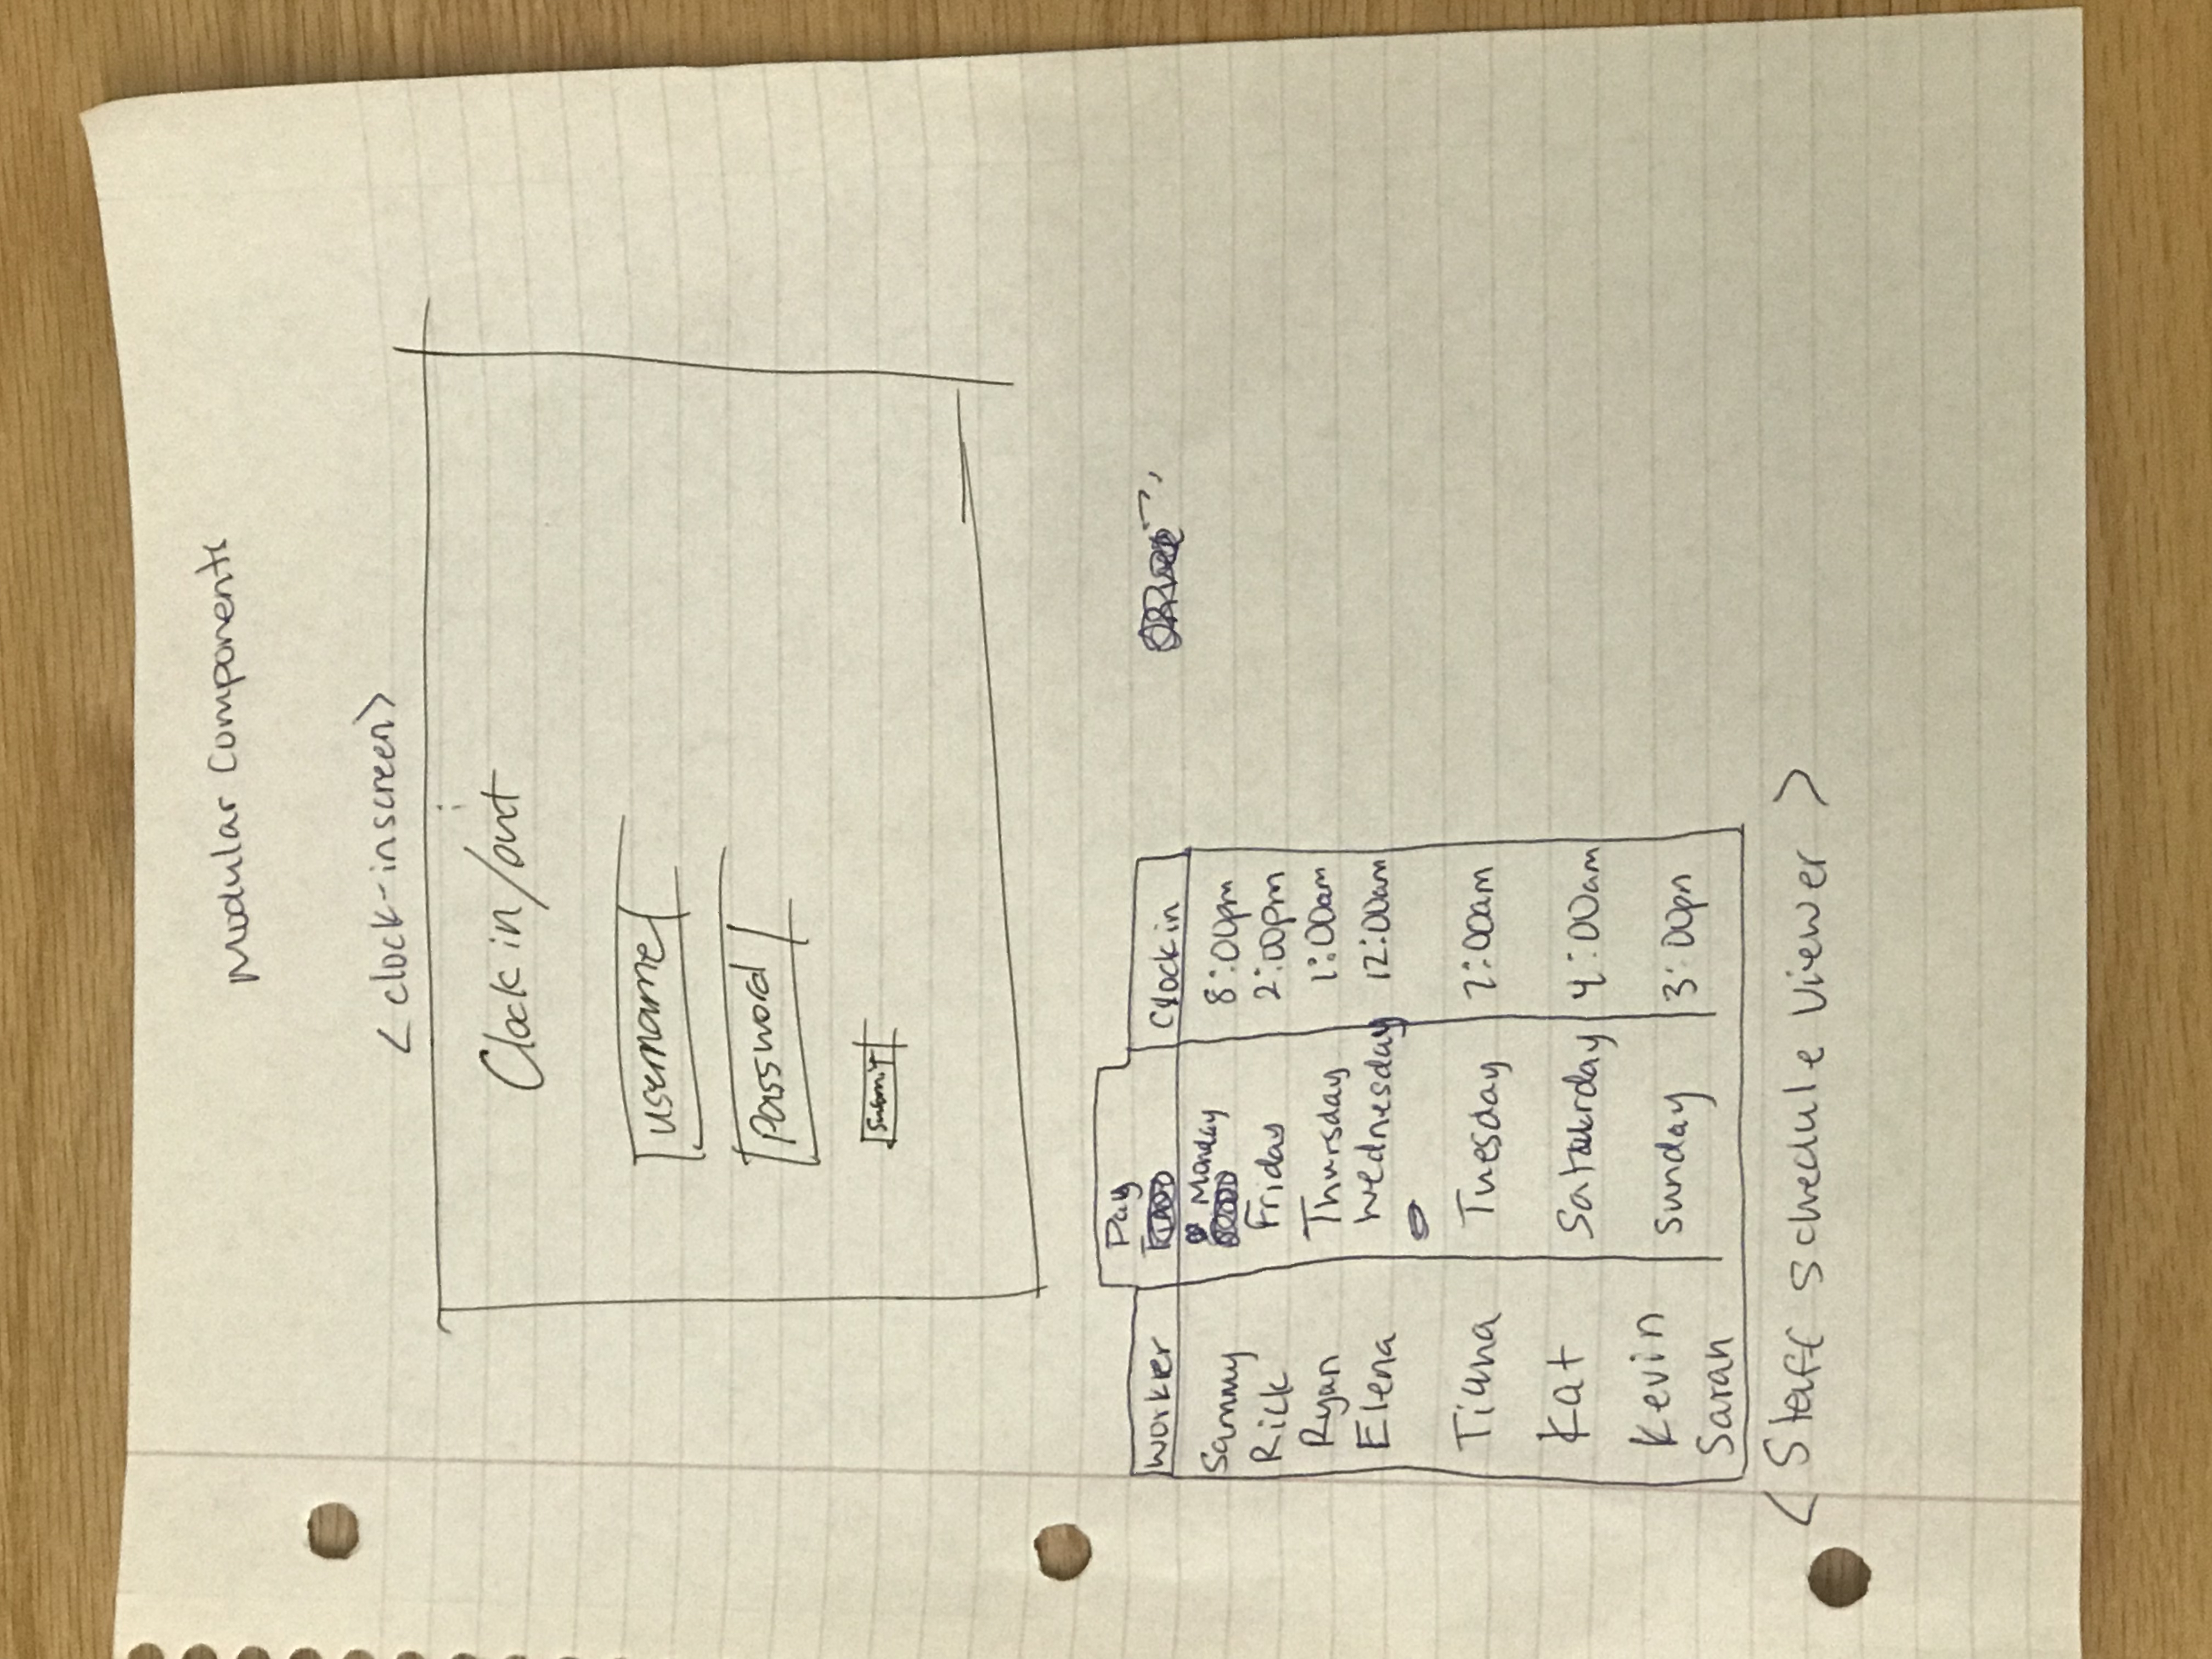 Modular Components
< clock-inscreen>
Clock in/out
username
Password
Submit
Day
Worker Clock in
Sammy Monday 8:00pm
Rick Friday 2:00pm
Ryan Thursday 1:00am
Elena Wednesday 12:00am
Tiana Tuesday 2:00am
Kat Saturday 4:00am
Kevin Sunday 3:00pm
Sarah
< Staff Schedule Viewer >